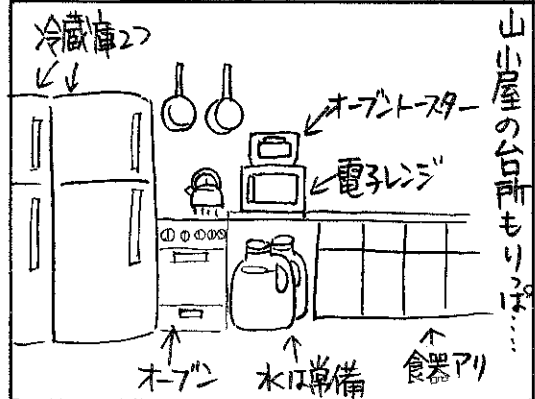 山小屋の台所もりっぱ……
冷蔵庫2つ
オーブントースター
電子レンジ
オーブン
水は常備
食器アリ